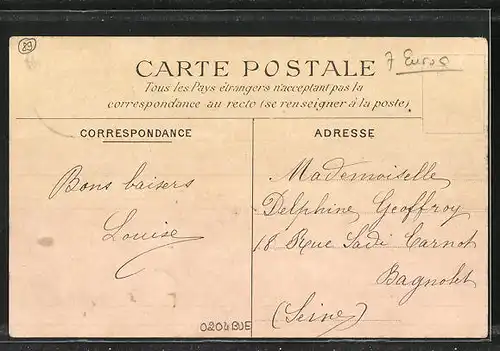 89
7 Euros
CARTE POSTALE
Tous les Pays étrangers n'acceptant pas la
correspondance au recto (se renseigner à la poste)
CORRESPONDANCE
Bons baisers
Louise
ADRESSE
Mademoiselle
Delphine Geoffroy
18 Rue Sadi Carnot
Bagnolet
(Seine)
0204BUE